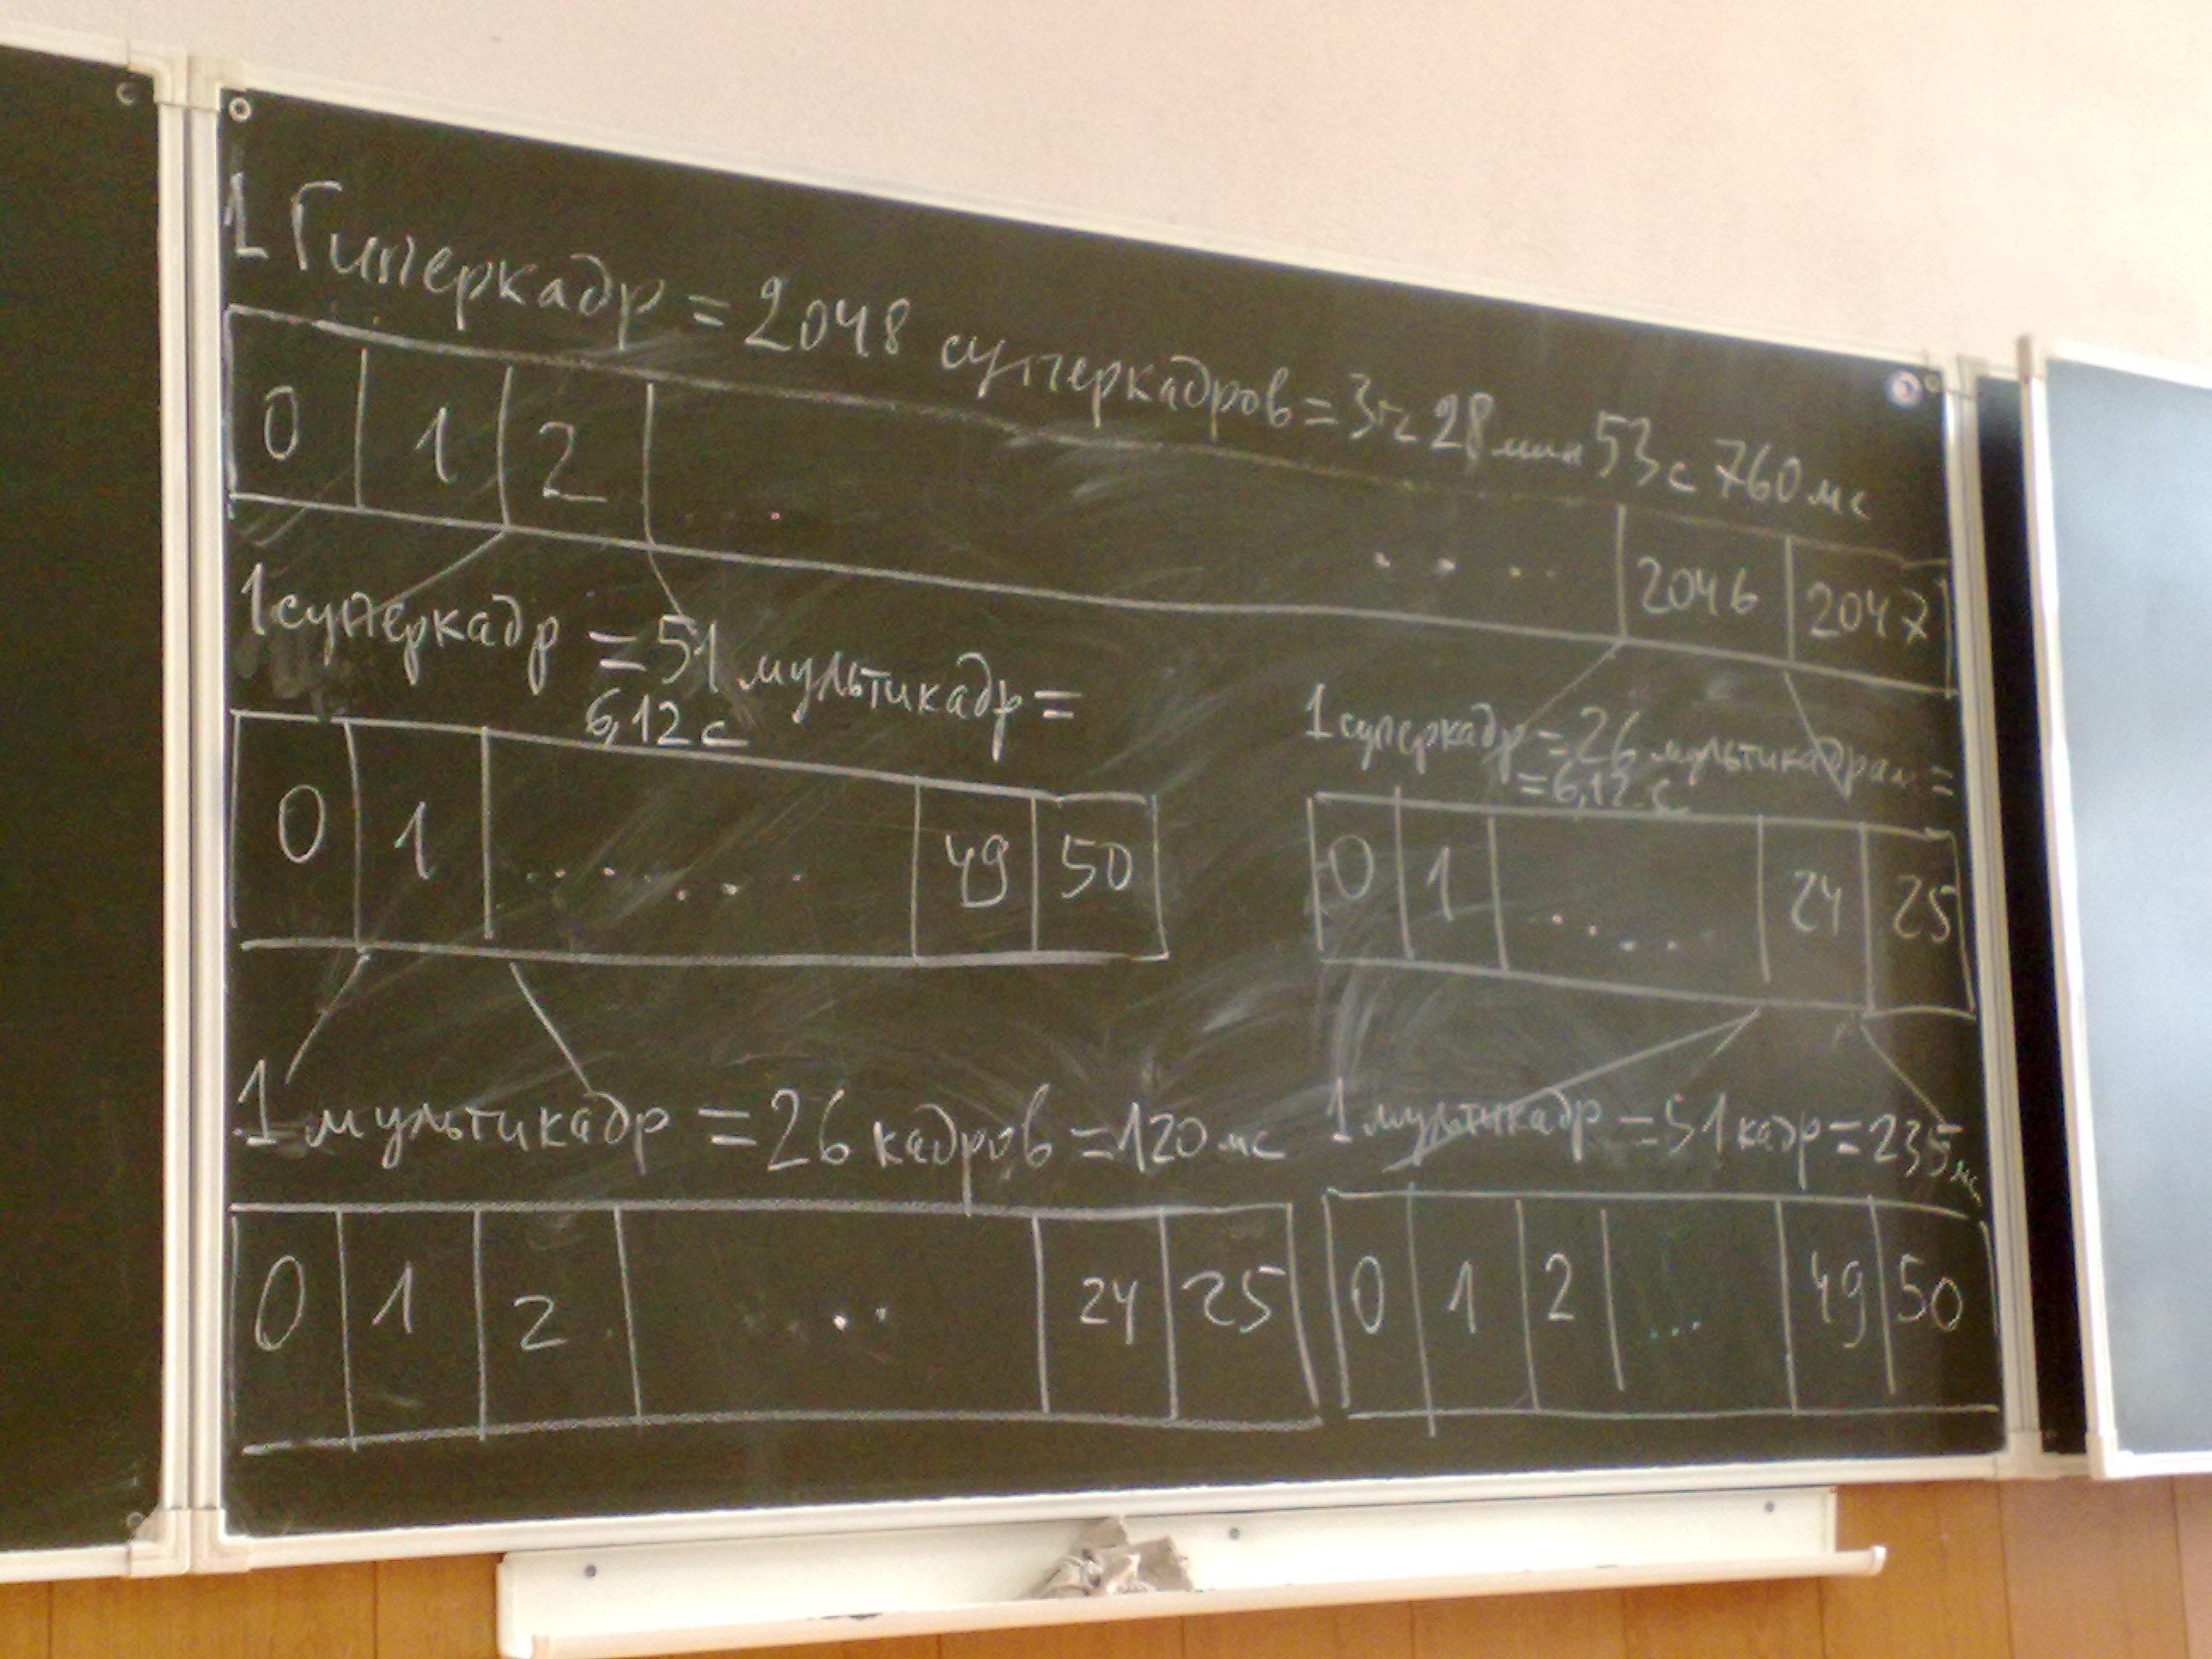 1 Гиперкадр = 2048 суперкадров = 3ч 28 мин 53 с 760 мс
0 1 2 . . . . 2046 2047
1 суперкадр = 51 мультикадр =
6,12 с
0 1 . . . . . . . . 49 50
1 суперкадр = 26 мультикадрам =
= 6,12 с
0 1 . . . . . 24 25
1 мультикадр = 26 кадров = 120 мс
0 1 2 . . . 24 25
1 мультикадр = 51 кадр = 235 мс
0 1 2 . . . 49 50